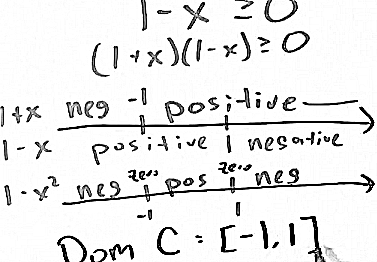 1 - x ≥ 0
(1+x)(1-x) ≥ 0
1+x neg -1 positive
1-x positive 1 negative
1-x² neg zero pos zero neg
-1 1
Dom C = [-1, 1]